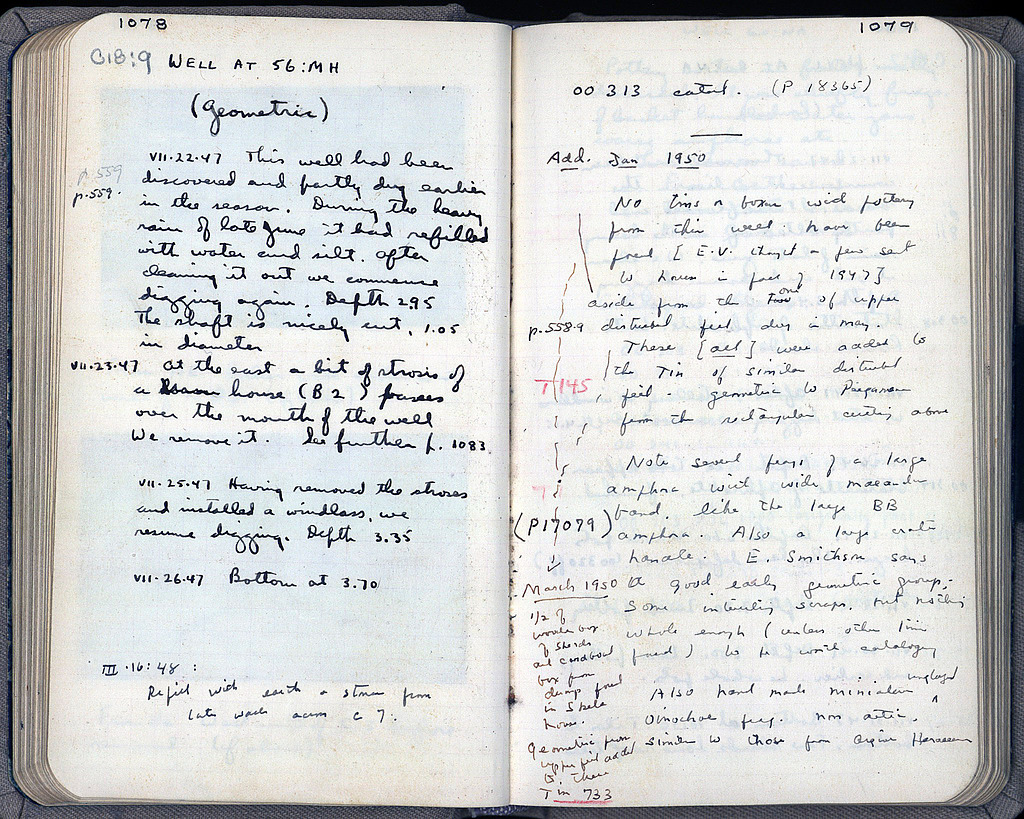 1078
C18:9 WELL AT 56:MH
(Geometric)
VII.22.47 This well had been
p.559
discovered and partly dug earlier
p.559.
in the season. During the heavy
rain of late June it had refilled
with water and silt. After
cleaning it out we commence
digging again. Depth 2.95
The shaft is nicely cut, 1.05
in diameter
VII.23.47 At the east a bit of strosis of
a house (B 2) passes
over the mouth of the well
We remove it. See further p. 1083
VII.25.47 Having removed the stroses
and installed a windlass, we
resume digging. Depth 3.35
VII.26.47 Bottom at 3.70
III.16:48:
Refill with earth & stones from
late wash across C 7.
1079
OO 313 catal. (P 18365)
Add. Jan 1950
No tins or boxes with pottery
from this well have been
found [E.V. thinks a few sent
to house in fall of 1947]
aside from the one of upper
p.558-9 disturbed fill dug in May.
These [all] were added to
the Tin of similar disturbed
T 145
fill - geometric to Pergamene
from the rectangular cutting above
Note several frags of a large
T
amphora with wide maeander
band, like the large BB
(P17079)
amphora. Also a large crater
handle. E. Smithson says
March 1950
a good early geometric group.
Some interesting scraps, but nothing
whole enough (unless other tins
found) to be worth cataloging
Also hand made miniature unglazed
oinochoe frag. non attic.
similar to those from Argive Heraeum
1/2 of
wooden box
of sherds
and cardboard
box from
dump found
in Skela
house.
Geometric from
upper fill added
to these
Tin 733